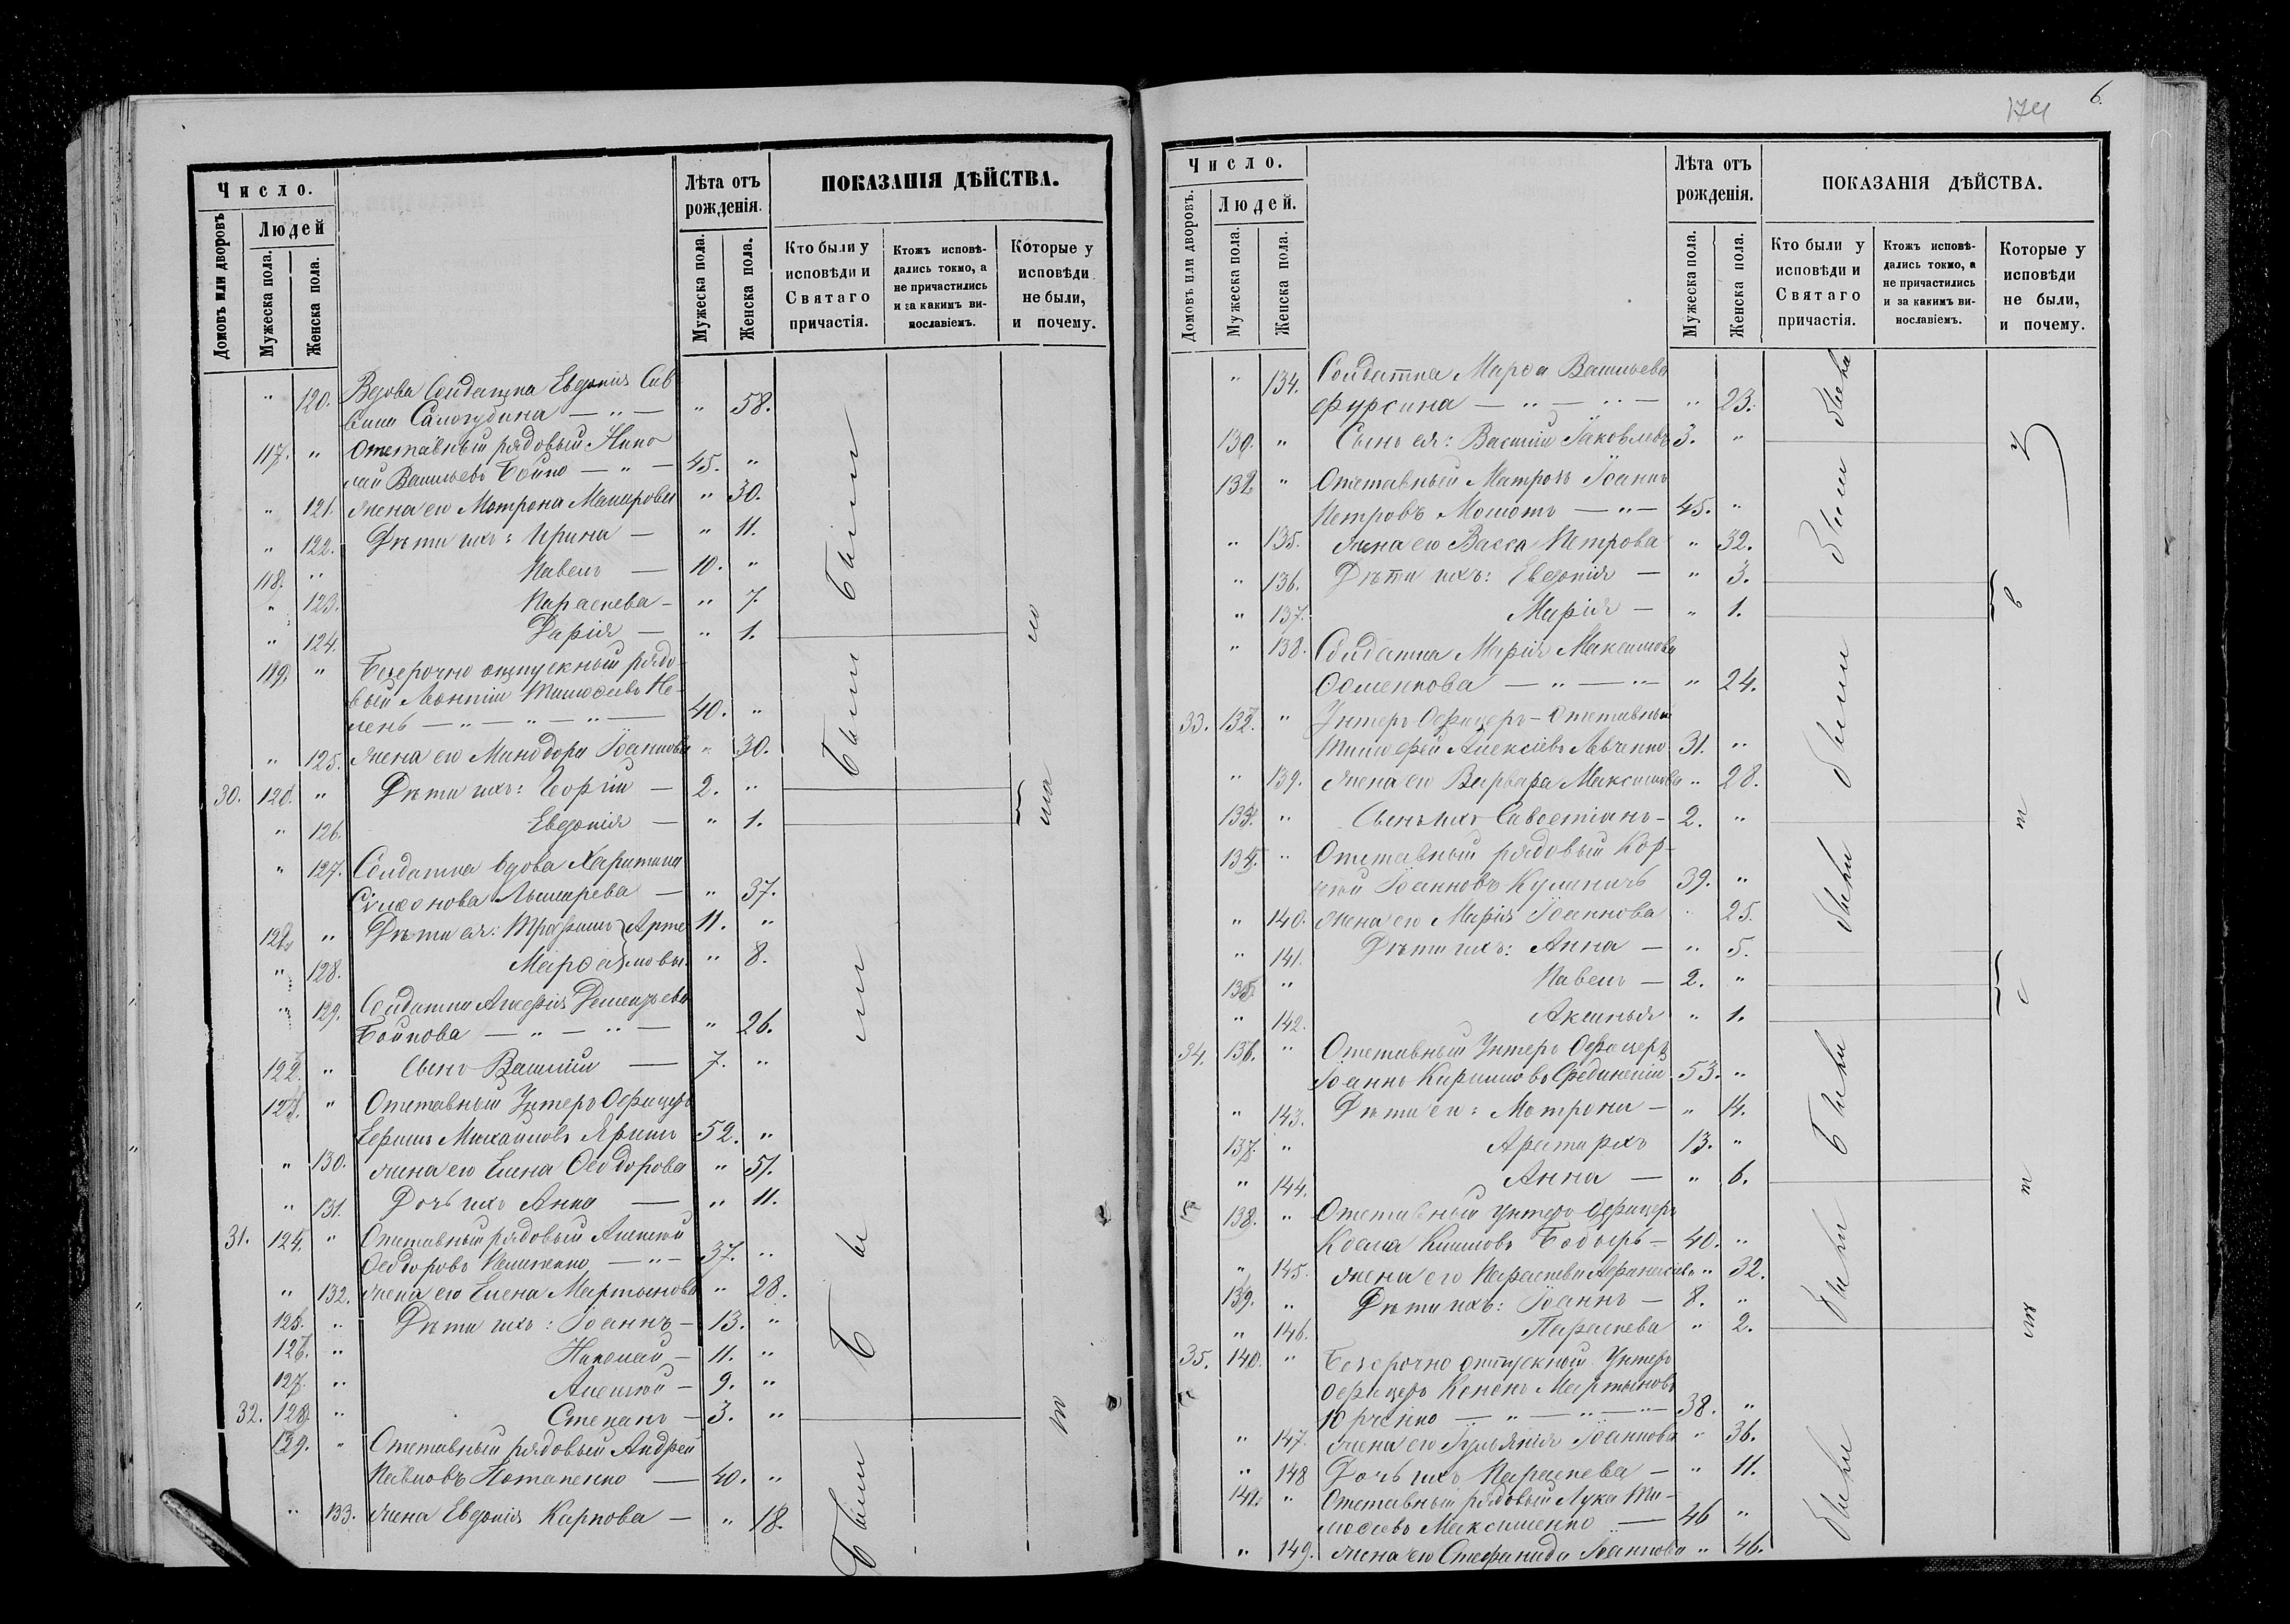 Число.
Домовъ или дворовъ.
Людей
Мужеска пола.
Женска пола.
Лѣта отъ рожденія.
Мужеска пола.
Женска пола.
ПОКАЗАНІЯ ДѢЙСТВА.
Кто были у исповѣди и Святаго причастія.
Ктожъ исповѣ-
дались токмо, а
не причастились
и за какимъ ви-
нословіемъ.
Которые у
исповѣди
не были,
и почему.
" 120. Вдова Солдатка Евдокія Сав
вина Самогубина — " — " 58.
117. " Отставный рядовый Нико
лай Васильевъ Бойко — " — 45. "
" 121. Жена его Мотрона Макарова " 30.
" 122. Дѣти ихъ: Ирина — " 11.
118. " Павелъ — 10. "
" 123. Параскева — " 7.
" 124. Дарія — " 1.
119. " Безсрочно отпускный рядо
вый Леонтій Тимоѳеевъ Не-
— " — " — " — 40. "
" 125. Жена его Минодора Іоаннова " 30.
30. 120. " Дѣти ихъ: Георгій — 2. "
" 126. Евдокія — " 1.
" 127. Солдатка вдова Харитина
— " 37.
121. " Дѣти ея: Трофимъ Арте 11. "
" 128. Марѳа мовы. " 8.
" 129. Солдатка Агафія Дементьева
Бойкова — " — " — " 26.
122. " Сынъ Василій — 7. "
123. " Отставный Унтеръ Офицеръ
Ефимъ Михайловъ 52. "
" 130. Жена его Елена Ѳеодорова " 51.
" 131. Дочь ихъ Анна — " 11.
31. 124. " Отставный рядовый Алексѣй
Ѳеодоровъ — " — 37. "
" 132. Жена его Елена Мартынова " 28.
125. " Дѣти ихъ: Іоаннъ — 13. "
126. " Николай — 11. "
127. " Алексѣй — 9. "
32. 128. " Степанъ — 3. "
129. " Отставный рядовый Андрей
Павловъ Потапенко — 40. "
" 133. Жена Евдокія Карпова — " 18.
Были
Были
Были
Были
174
6.
Число.
Домовъ или дворовъ.
Людей.
Мужеска пола.
Женска пола.
Лѣта отъ рожденія.
Мужеска пола.
Женска пола.
ПОКАЗАНІЯ ДѢЙСТВА.
Кто были у
исповѣди и
Святаго
причастія.
Ктожъ исповѣ-
дались токмо, а
не причастились
и за какимъ ви-
нославіемъ.
Которые у
исповѣди
не были,
и почему.
" 134. Солдатка Марѳа Васильева
Фурсина — " — " — " 23.
130. " Сынъ ея: Василій Іаковлевъ 3. "
131. " Отставный Матросъ Іоаннъ
Петровъ — " — 45. "
" 135. Жена его Васса Петрова " 32.
" 136. Дѣти ихъ: Евдокія — " 3.
" 137. Марія — " 1.
" 138. Солдатка Марія Максимова
— " — " — " 24.
33. 132. " Унтеръ Офицеръ - Отставный
Тимофей Алексіевъ Левченко 31. "
" 139. Жена его Варвара Максимова " 28.
133. " Сынъ ихъ Савостіанъ — 2. "
134. " Отставный рядовый Кор-
нѣй Іоанновъ Куличъ 39. "
" 140. Жена его Марія Іоаннова " 25.
" 141. Дѣти ихъ: Анна — " 5.
135. " Павелъ — 2. "
" 142. Аксинья " 1.
34. 136. " Отставный Унтеръ Офицеръ
Іоаннъ Кириловъ 53. "
" 143. Дѣти его: Мотрона — " 14.
137. " Аристархъ 13. "
" 144. Анна — " 6.
138. " Отставный Унтеръ Офицеръ
Косма Климовъ — 40. "
" 145. Жена его Параскева Афанасьева " 32.
139. " Дѣти ихъ: Іоаннъ — 8. "
" 146. Параскева " 2.
35. 140. " Безсрочно отпускной Унтеръ
Офицеръ Кононъ Мартыновъ
Юрченко — " — " — " — 38. "
" 147. Жена его Іуліанія Іоаннова " 36.
" 148 Дочь ихъ Параскева — " 11.
141. " Отставный рядовый Лука Ти-
моѳеевъ Максименко — 46 "
" 149. Жена его Стефанида Іоаннова " 46.
была
были
были
были
были
были
были